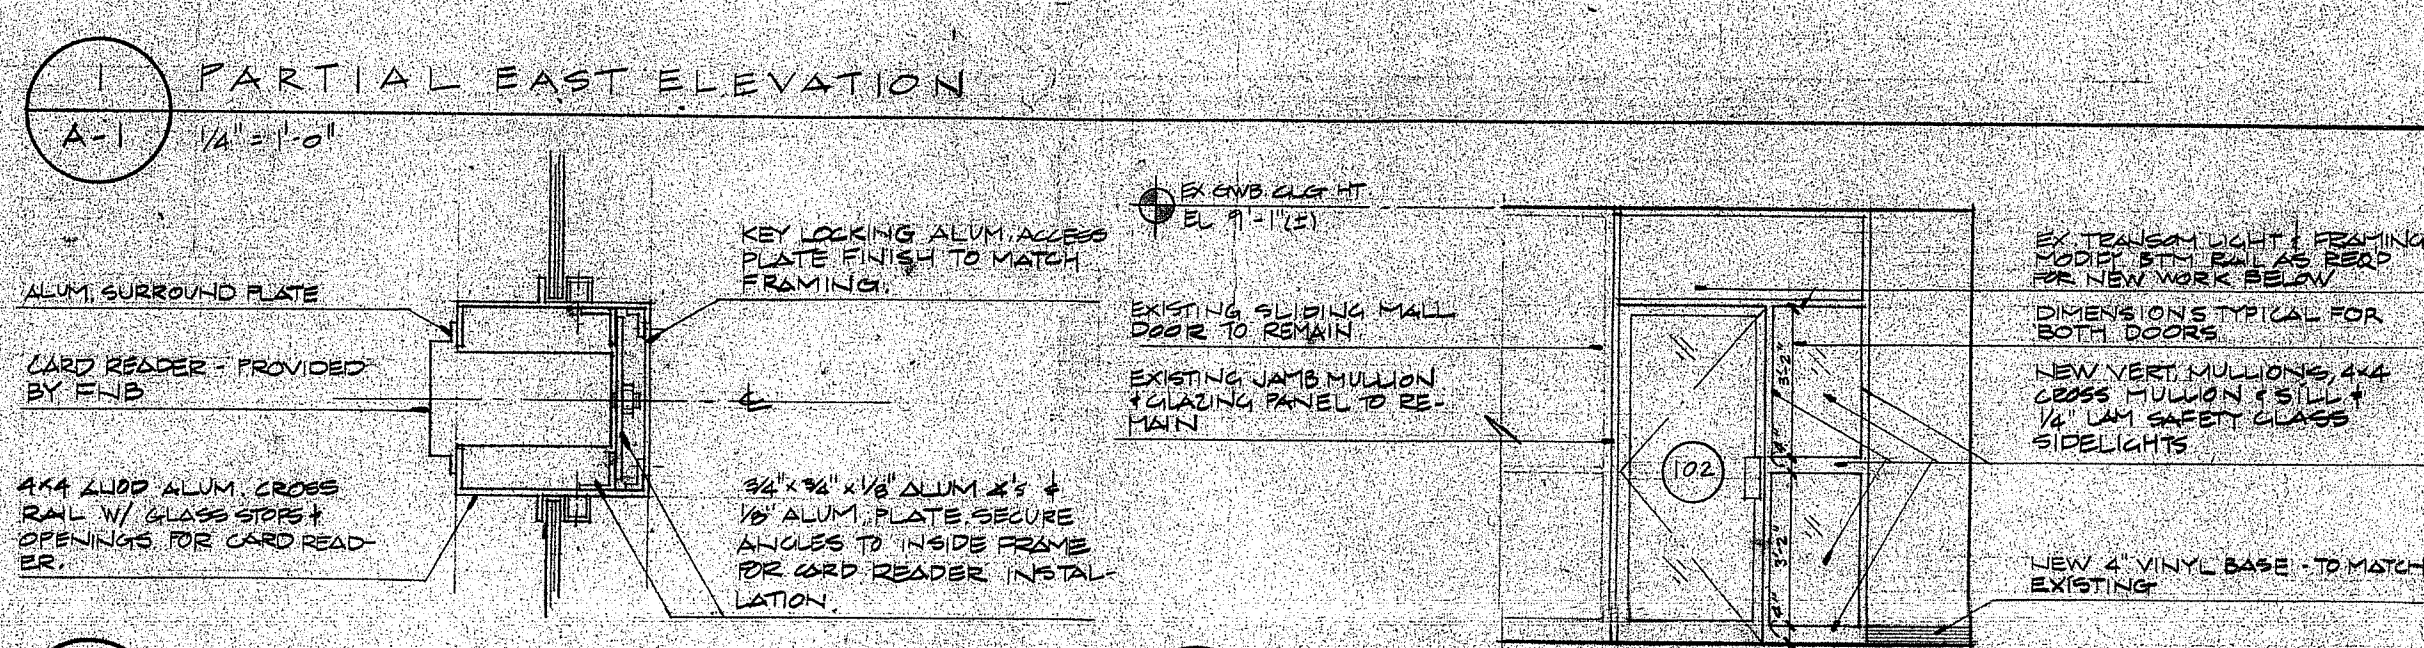 1
A-1
PARTIAL EAST ELEVATION
1/4" = 1'-0"
ALUM. SURROUND PLATE
CARD READER - PROVIDED
BY FNB
4x4 ANOD ALUM. CROSS
RAIL W/ GLASS STOPS &
OPENINGS FOR CARD READ-
ER.
KEY LOCKING ALUM. ACCESS
PLATE FINISH TO MATCH
FRAMING.
3/4" x 3/4" x 1/8" ALUM
1/8" ALUM. PLATE. SECURE
ANGLES TO INSIDE FRAME
FOR CARD READER INSTAL-
LATION.
EX GWB CLG HT
EL 9'-1"(±)
EXISTING SLIDING MALL
DOOR TO REMAIN
EXISTING JAMB MULLION
& GLAZING PANEL TO RE-
MAIN
102
3'-2"
4"
3'-2"
4"
EX. TRANSOM LIGHT & FRAMING
MODIFY BTM RAIL AS REQD
FOR NEW WORK BELOW
DIMENSIONS TYPICAL FOR
BOTH DOORS
NEW VERT. MULLIONS, 4x4
CROSS MULLION & SILL &
1/4" LAM SAFETY GLASS
SIDELIGHTS
NEW 4" VINYL BASE - TO MATCH
EXISTING